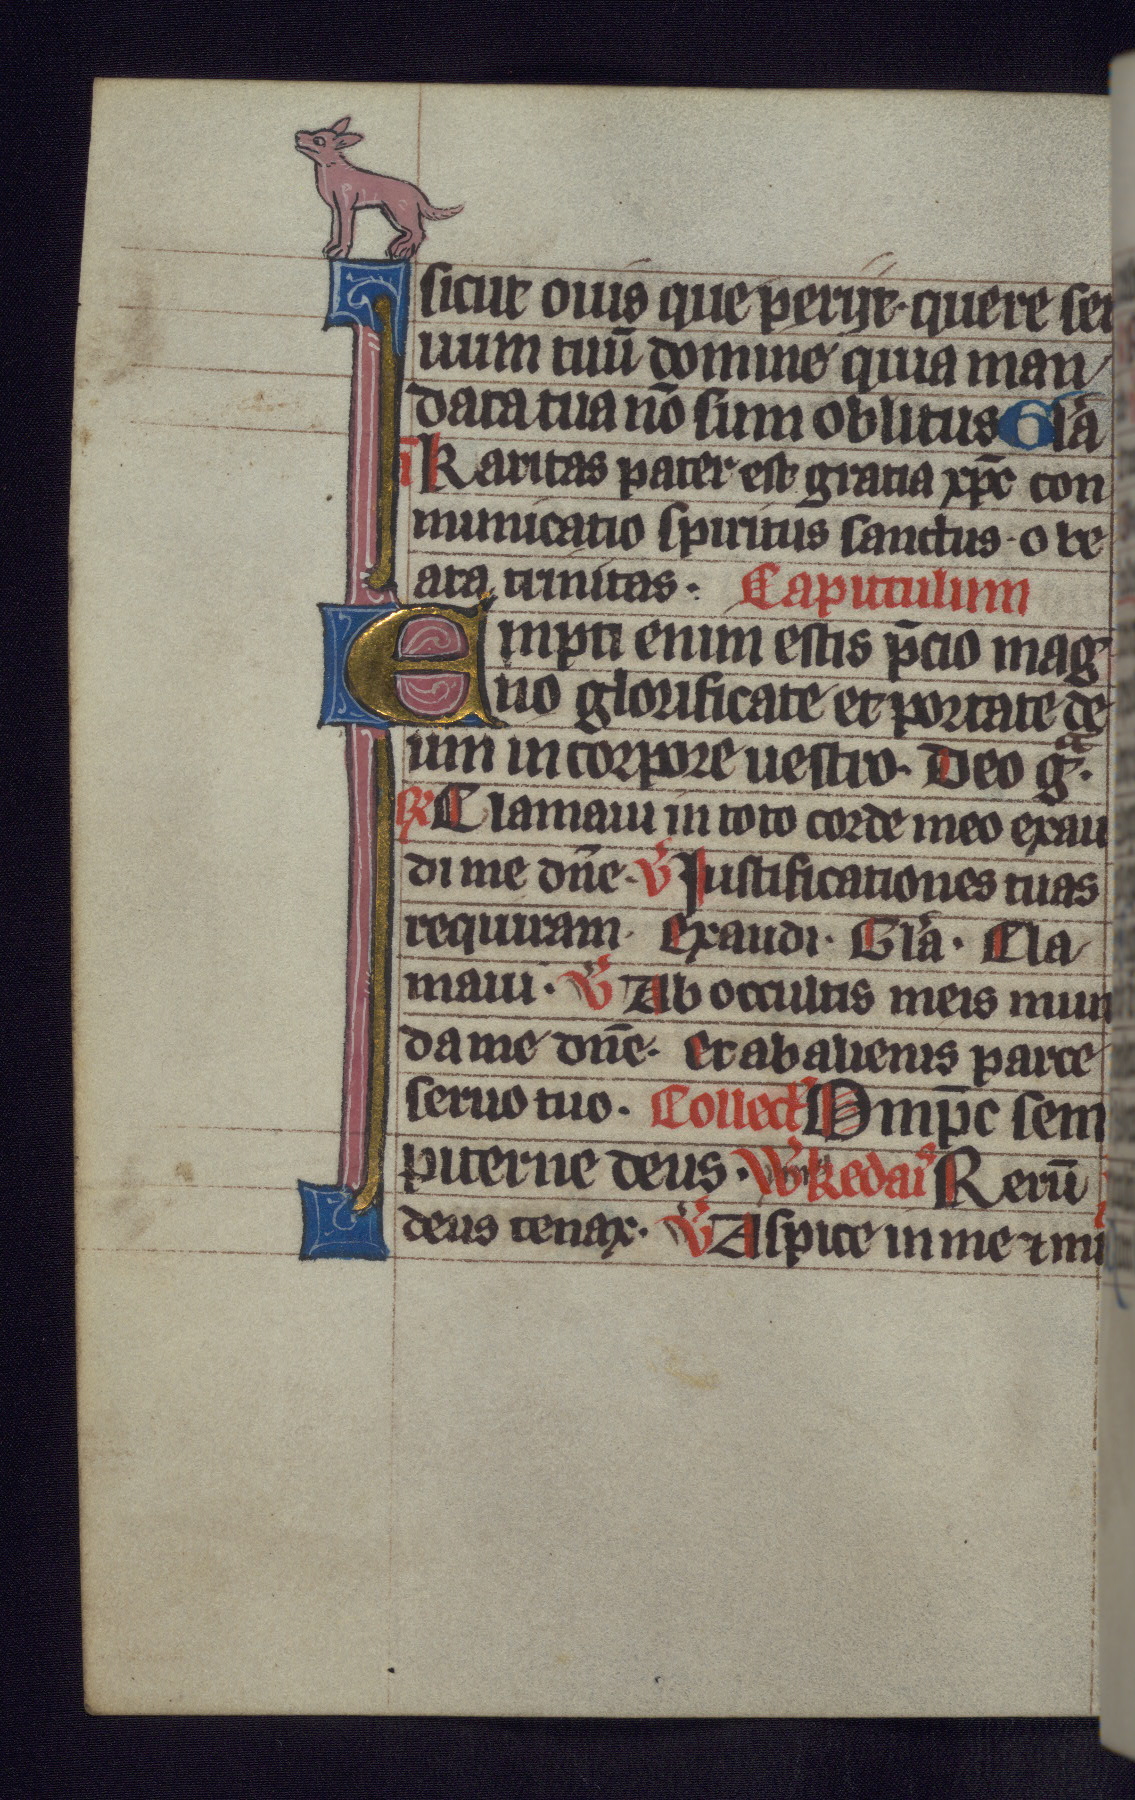 sicut ouis que perijt· quere ser
uum tuū domine quia man
data tua nō sum oblitus Glā
ā Karitas pater est gratia xp̄c con
municatio spiritus sanctus· o be
ata trinitas· Capitulum
Empti enim estis p̄cio mag
no glorificate et portate de
um in corpore uestro· Deo gᵃ·
℞ Clamaui in toto corde meo exau
di me dn̄e· ℣ Justificationes tuas
requiram· Exaudi· Glā· Cla
maui· ℣ Ab occultis meis mun
da me dn̄e· Et ab alienis parce
seruo tuo· Collect' Omp̄c sem
piterne deus· W'kedai' Rerū
deus tenax· ℣ Aspice in me ⁊ mi